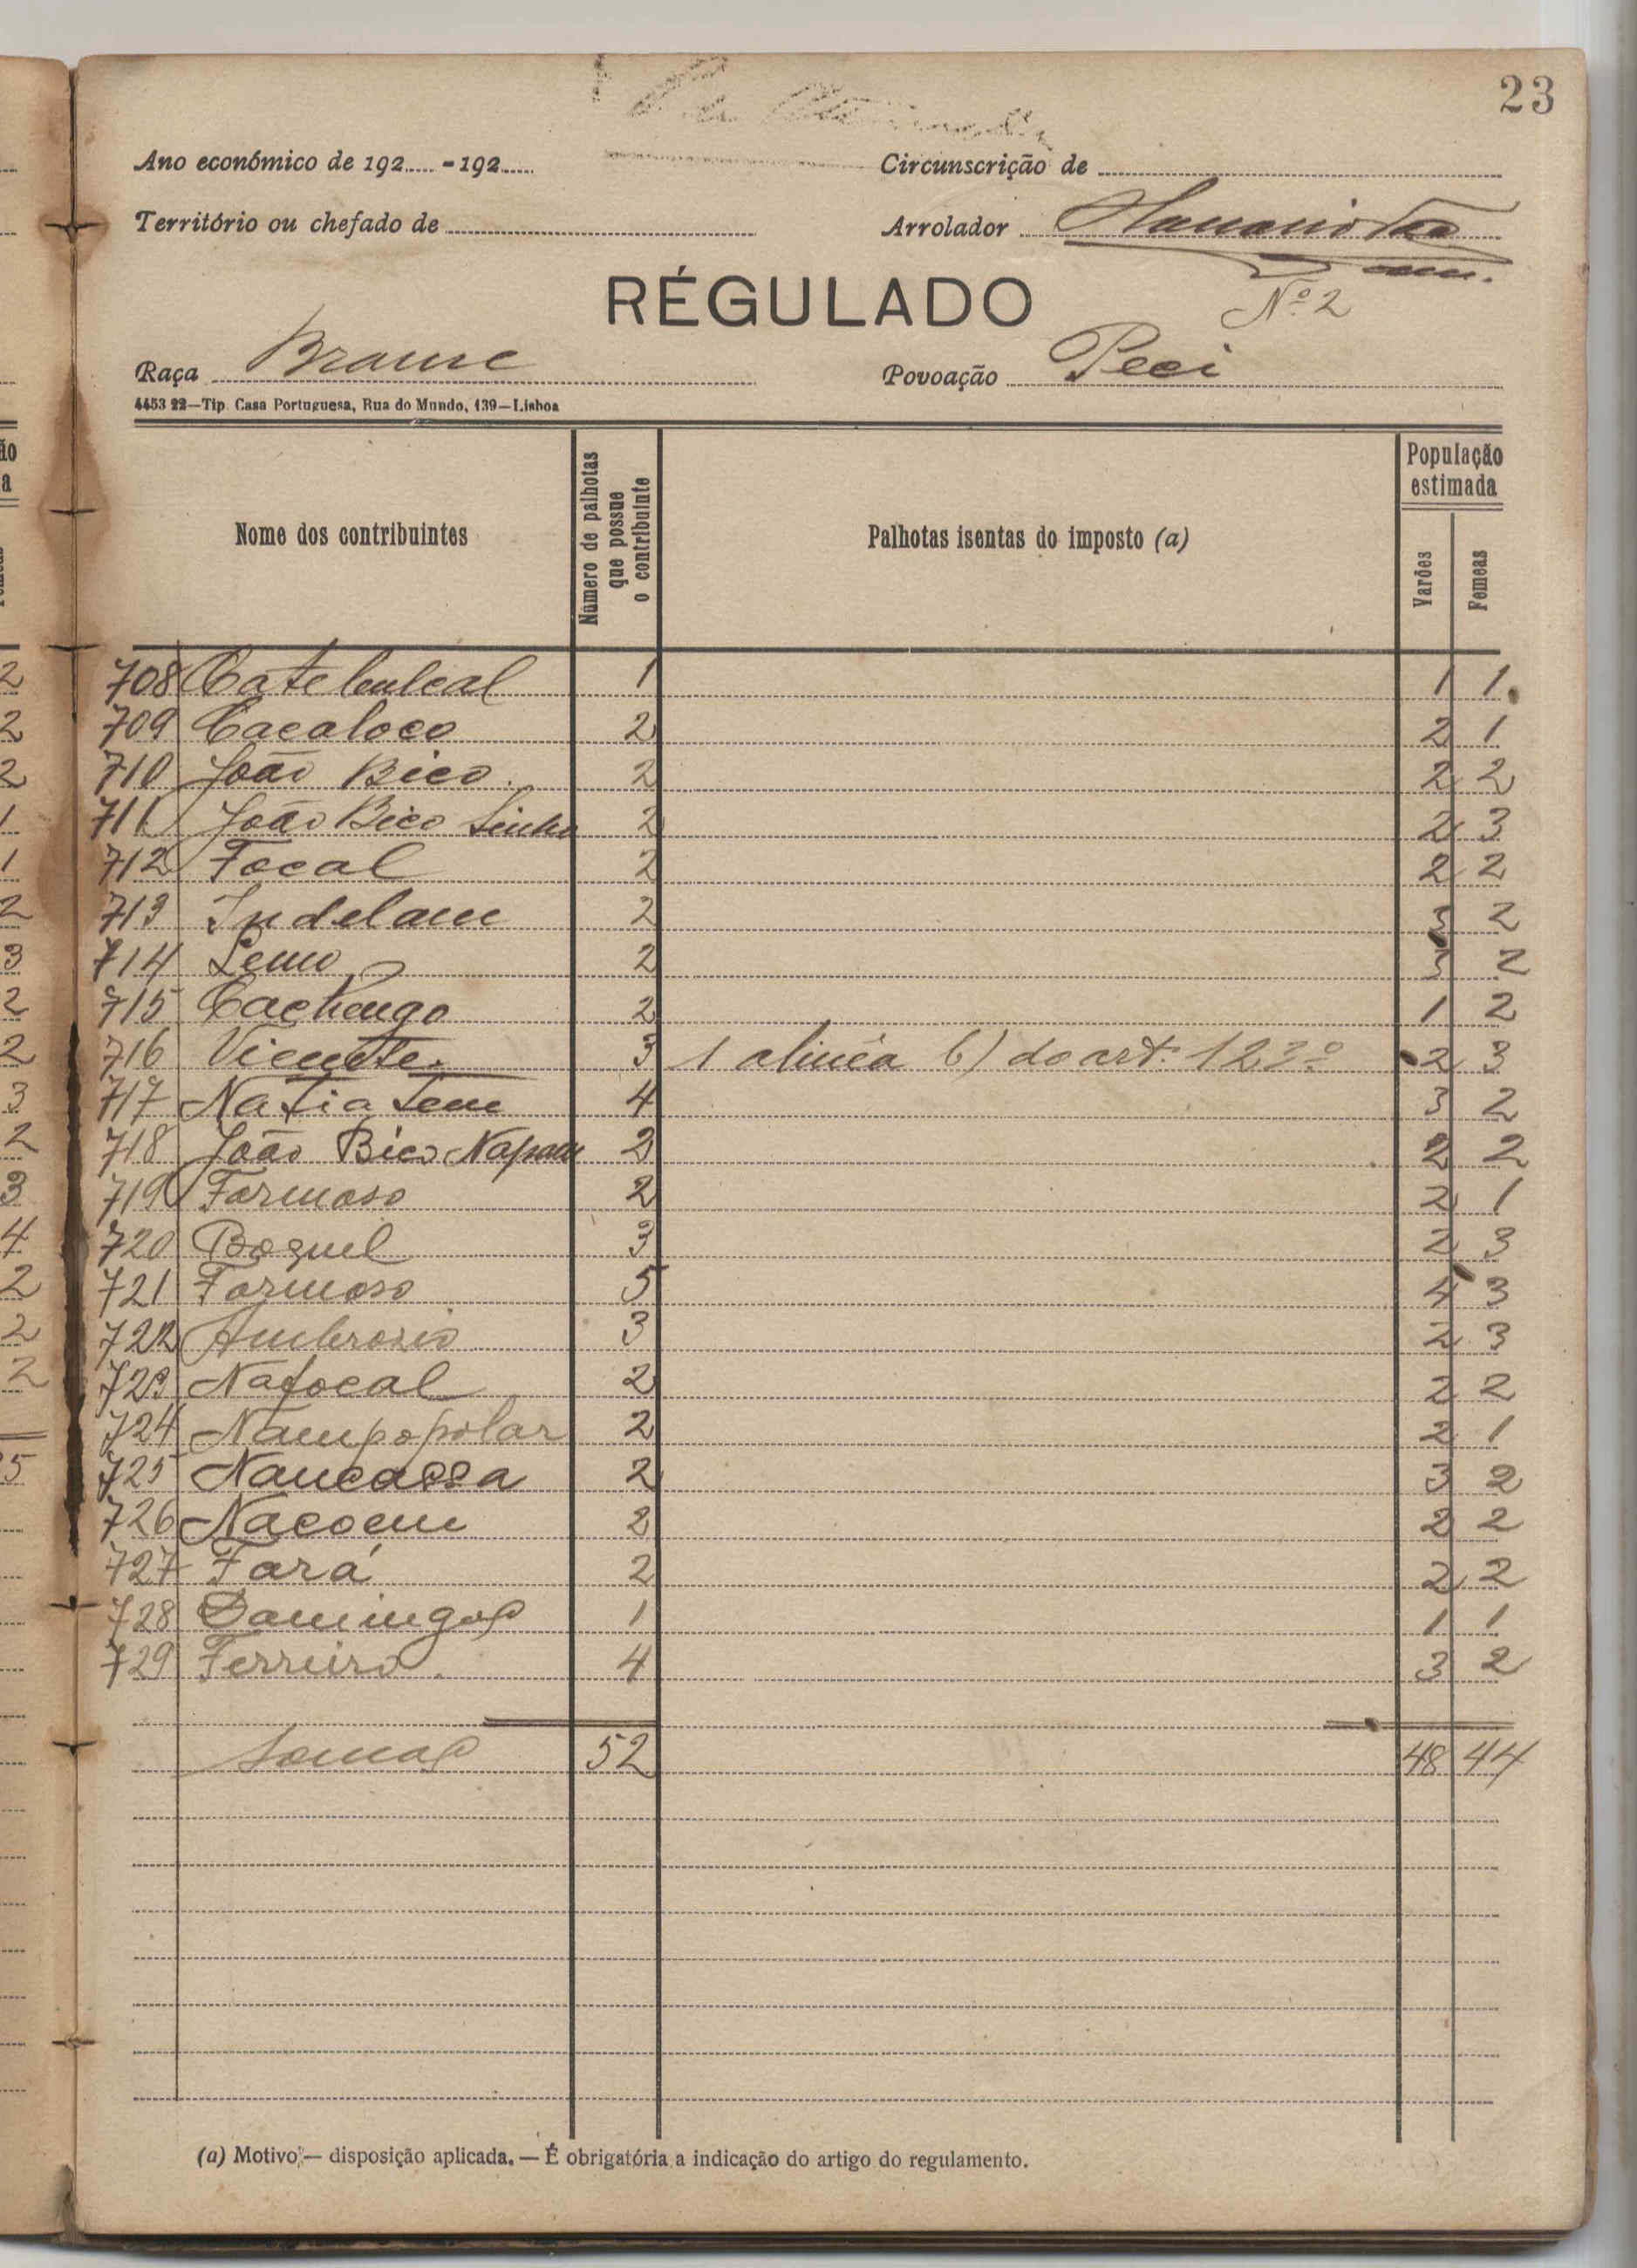 23
Ano económico de 192..... - 192.....
Circunscrição de
Território ou chefado de
Arrolador
RÉGULADO
Nº 2
Raça Brame
Povoação Peci
4453 22—Tip. Casa Portuguesa, Rua do Mundo, 139—Lisboa
Nome dos contribuintes
Número de palhotas que possue o contribuinte
Palhotas isentas do imposto (a)
População estimada
Varões
Femeas
708 1 1 1
709 Cacaloco 2 2 1
710 João Bico 2 2 2
711 João Bico 2 2 3
712 Focal 2 2 2
713 Indelam 2 3 2
714 2 3 2
715 Cachengo 2 1 2
716 Vicente 3 1 alinéa b) do art. 123º 2 3
717 4 3 2
718 João Bico 2 2 2
719 Formoso 2 2 1
720 Boquel 3 2 3
721 Formoso 5 4 3
722 Ambrosio 3 2 3
723 Nafocal 2 2 2
724 Nampopolar 2 2 1
725 Nancassa 2 3 2
726 Nacoem 2 2 2
727 Fará 2 2 2
728 Domingos 1 1 1
729 Ferreira 4 3 2
Somas 52 48 44
(a) Motivo — disposição aplicada. — É obrigatória a indicação do artigo do regulamento.